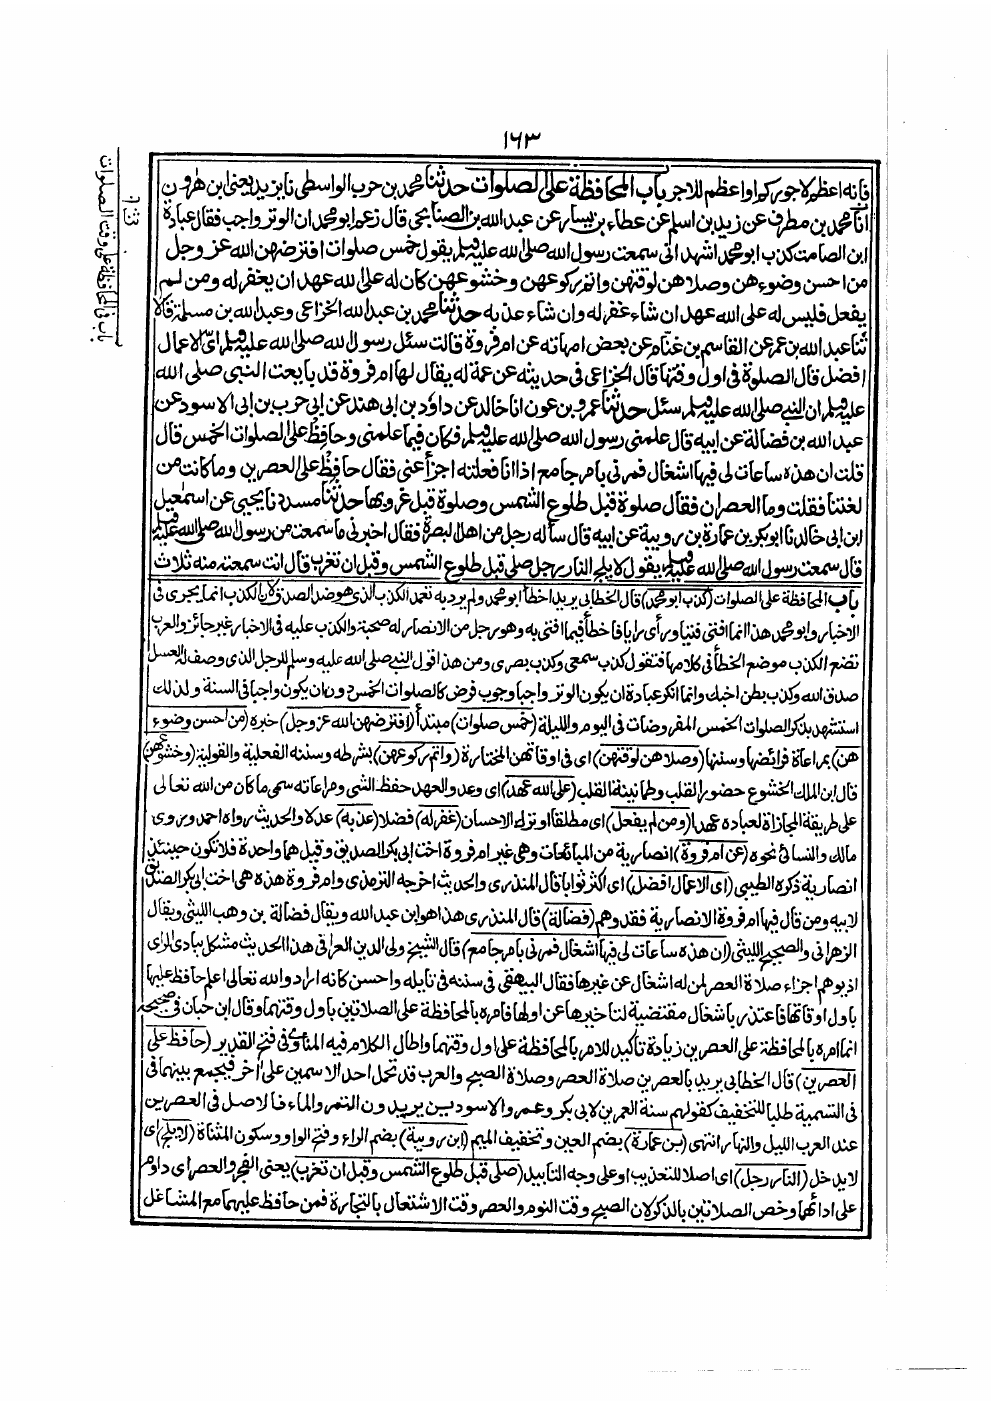 ١٦٣
فانه اعظم لاجوركم او اعظم للاجر باب المحافظة على الصلوات حدثنا محمد بن حرب الواسطى نا يزيد يعنى ابن هٰرون
انا محمد بن مطرف عن زيد بن اسلم عن عطاء بن يسار عن عبد الله بن الصنابحى قال زعم ابو محمد ان الوتر واجب فقال عبادة
ابن الصامت كذب ابو محمد اشهد انى سمعت رسول الله صلى الله عليه وسلم يقول خمس صلوات افترضهن الله عز وجل
من احسن وضوءهن وصلاهن لوقتهن واتم ركوعهن وخشوعهن كان له على الله عهد ان يغفر له ومن لم
يفعل فليس له على الله عهد ان شاء غفر له وان شاء عذبه حدثنا محمد بن عبد الله الخزاعى وعبد الله بن مسلمة قالا
ثنا عبد الله بن عمر عن القاسم بن غنام عن بعض امهاته عن ام فروة قالت سئل رسول الله صلى الله عليه وسلم اىّ الاعمال
افضل قال الصلوة فى اول وقتها قال الخزاعى فى حديثه عن عمة له يقال لها ام فروة قد بايعت النبى صلى الله
عليه وسلم ان النبى صلى الله عليه وسلم سئل حدثنا عمرو بن عون انا خالد عن داؤد بن ابى هند عن ابى حرب بن ابى الاسود عن
عبد الله بن فضالة عن ابيه قال علمنى رسول الله صلى الله عليه وسلم فكان فيما علمنى وحافظ على الصلوات الخمس قال
قلت ان هذه ساعات لى فيها اشغال فمرنى بامر جامع اذا انا فعلته اجزأ عنى فقال حافظ على العصرين وما كانت من
لغتنا فقلت وما العصران فقال صلوة قبل طلوع الشمس وصلوة قبل غروبها حدثنا مسدد نا يحيى عن اسمٰعيل
ابن ابى خالد نا ابو بكر بن عمارة بن رويبة عن ابيه قال سأله رجل من اهل البصرة فقال اخبرنى ما سمعت من رسول الله صلى الله عليه وسلم
قال سمعت رسول الله صلى الله عليه وسلم يقول لا يلج النار رجل صلى قبل طلوع الشمس وقبل ان تغرب قال انت سمعته منه ثلاث
باب المحافظة على الصلوات (كذب ابو محمد) قال الخطابى يريد اخطأ ابو محمد ولم يرد به تعمد الكذب الذى هو ضد الصدق لان الكذب انما يجرى فى
الاخبار وابو محمد هذا انما افتى فتيا ورأى رايا فاخطأ فيما افتى به وهو رجل من الانصار له صحبة والكذب عليه فى الاخبار غير جائز والعرب
تضع الكذب موضع الخطأ فى كلامها فتقول كذب سمعى وكذب بصرى ومن هذا قول النبى صلى الله عليه وسلم للرجل الذى وصف له العسل
صدق الله وكذب بطن اخيك وانما انكر عبادة ان يكون الوتر واجبا وجوب فرض كالصلوات الخمس دون ان يكون واجبا فى السنة ولذلك
استشهد بذكر الصلوات الخمس المفروضات فى اليوم والليلة (خمس صلوات) مبتدأ (افترضهن الله عز وجل) خبره (من احسن وضوء
هن) بمراعاة فرائضها وسننها (وصلاهن لوقتهن) اى فى اوقاتهن المختارة (واتم ركوعهن) بشرطه وسننه الفعلية والقولية (وخشوعهن)
قال ابن الملك الخشوع حضور القلب وطمانينة القلب (على الله عهد) اى وعد والعهد حفظ الشى ومراعاته سمى ما كان من الله تعالى
على طريقة المجازاة لعباده عهدا (ومن لم يفعل) اى مطلقا او ترك الاحسان (غفر له) فضلا (عذبه) عدلا والحديث رواه احمد وروى
مالك والنسائى نحوه (عن ام فروة) انصارية من المبائعات وهى غير ام فروة اخت ابى بكر الصديق وقيل هما واحدة فلا تكون حينئذ
انصارية ذكره الطيبى (اى الاعمال افضل) اى اكثر ثوابا قال المنذرى والحديث اخرجه الترمذى وام فروة هذه هى اخت ابى بكر الصديق
لابيه ومن قال فيها ام فروة الانصارية فقد وهم (فضالة) قال المنذرى هذا هو ابن عبد الله ويقال فضالة بن وهب الليثى ويقال
الزهرانى والصحيح الليثى (ان هذه ساعات لى فيها اشغال فمرنى بامر جامع) قال الشيخ ولى الدين العراقى هذا الحديث مشكل ببادى الراى
اذ يوهم اجزاء صلاة العصر لمن له اشغال عن غيرها فقال البيهقى فى سننه فى تاويله واحسن كانه اراد والله تعالى اعلم حافظ عليها
باول اوقاتها فاعتذر باشغال مقتضية لتاخيرها عن اولها فامره بالمحافظة على الصلاتين باول وقتهما وقال ابن حبان فى صحيحه
انما امره بالمحافظة على العصرين زيادة تأكيد للامر بالمحافظة على اول وقتهما واطال الكلام فيه المناوى فى فتح القدير (حافظ على
العصرين) قال الخطابى يريد بالعصرين صلاة العصر وصلاة الصبح والعرب قد تحمل احد الاسمين على آخر فيجمع بينهما فى
فى التسمية طلبا للتخفيف كقولهم سنة العمرين لابى بكر وعمر والاسودين يريدون التمر والماء فالاصل فى العصرين
عند العرب الليل والنهار انتهى (بن عمارة) بضم العين وتخفيف الميم (ابن رويبة) بضم الراء وفتح الواو وسكون المثناة (لا يلج) اى
لا يدخل (النار رجل) اى اصلا للتعذيب او على وجه التابيد (صلى قبل طلوع الشمس وقبل ان تغرب) يعنى الفجر والعصر اى داوم
على ادائهما وخص الصلاتين بالذكر لان الصبح وقت النوم والعصر وقت الاشتغال بالتجارة فمن حافظ عليهما مع المشاغل
باب فى المحافظة على وقت الصلوات